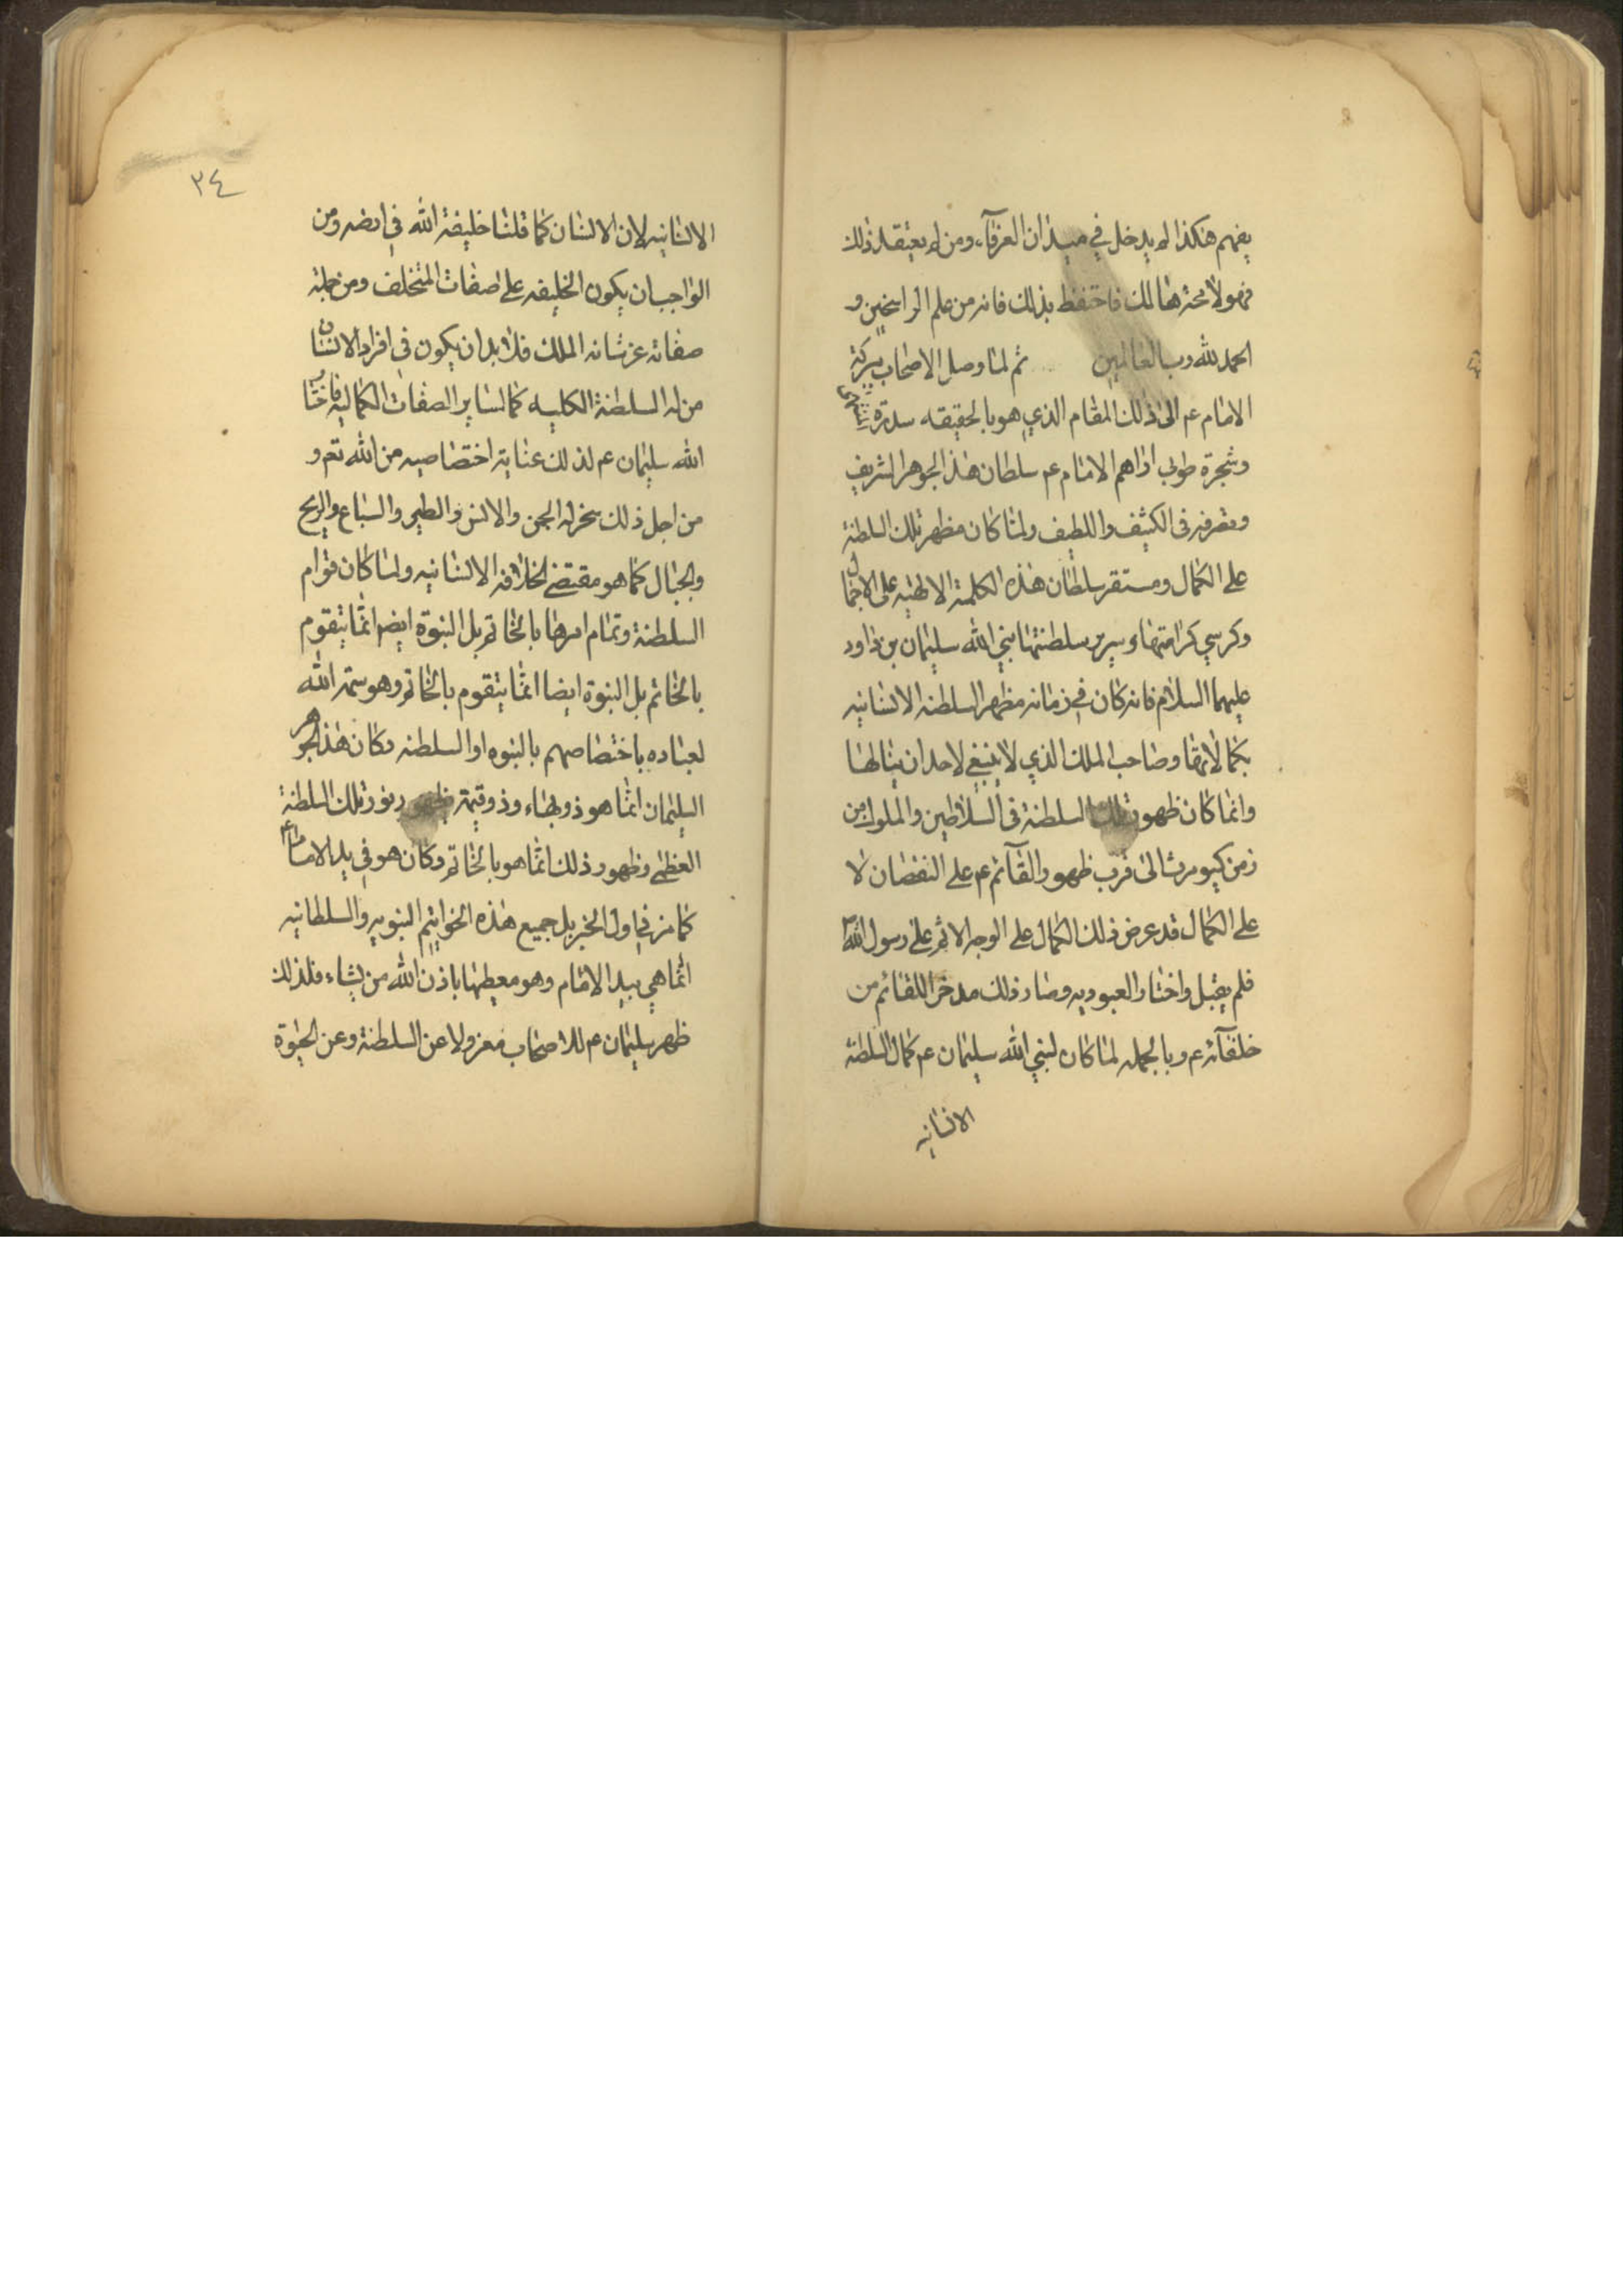 يفهم هكذا لم يدخل في ميدان العرفآء ومن لم يعتقد ذلك
فهو لا محة هنالك فاحتفظ بذلك فانه من علم الراسخين و
الحمد لله رب العالمين ثم لما وصل الاصحاب ببركة
الامام عم الى ذلك المقام الذي هو بالحقيقه سدرة
وشجرة طوبى اراهم الامام عم سلطان هذا الجوهر الشريف
وتصرفه في الكثيف واللطيف ولما كان مظهر تلك السلطنة
على الكمال ومستقر سلطان هذه الكلمة الالهيه على الاجمال
وكرسي كرامتها وسرير سلطنتها نبي الله سليمان بن داود
عليهما السلام فانه كان في زمانه مظهر السلطنه الانسانيه
بكمالاتها وصاحب الملك الذي لا ينبغي لاحد ان ينالها
وانما كان ظهور تلك السلطنة في السلاطين والملوك من
زمن كيومرث الى قرب ظهور القآئم عم على النقصان لا
على الكمال قد عرض ذلك الكمال على الوجه الاتم على رسول الله ص
فلم يقبل واختار العبوديه وصار ذلك مدخرا للقائم من
خلفآئه عم وبالجمله لما كان لنبي الله سليمان عم كمال السلطنة
الانسانيه
٣٤
الانسانيه لان الانسان كما قلنا خليفة الله في ارضه ومن
الواجب ان يكون الخليفه على صفات المتخلف ومن جملة
صفاته عز شانه الملك فلا بد ان يكون في افراد الانسان
من له السلطنة الكليه كما لساير الصفات الكماليه فاختار
الله سليمان عم لذلك عناية اختصاصيه من الله تع و
من اجل ذلك سخر له الجن والانس والطير والسباع والريح
والجبال كما هو مقتضى الخلافه الانسانيه ولما كان قوام
السلطنة وتمام امرها بالخاتم بل النبوة ايضا انما يتقوم
بالخاتم بل النبوة ايضا انما يتقوم بالخاتم وهو سمة الله
لعباده باختصاصهم بالنبوه او السلطنه وكان هذا الجوهر
السليمان انما هو ذو بهاء وذو قيمة بظهور نور تلك السلطنة
العظمى وظهور ذلك انما هو بالخاتم وكان هو في يد الامام عم
كما مر في اول الخبر بل جميع هذه الخواتيم النبويه والسلطانيه
انما هي بيد الامام وهو معطيها باذن الله من يشاء فلذلك
ظهر سليمان عم للاصحاب معزولا عن السلطنة وعن الحيوة